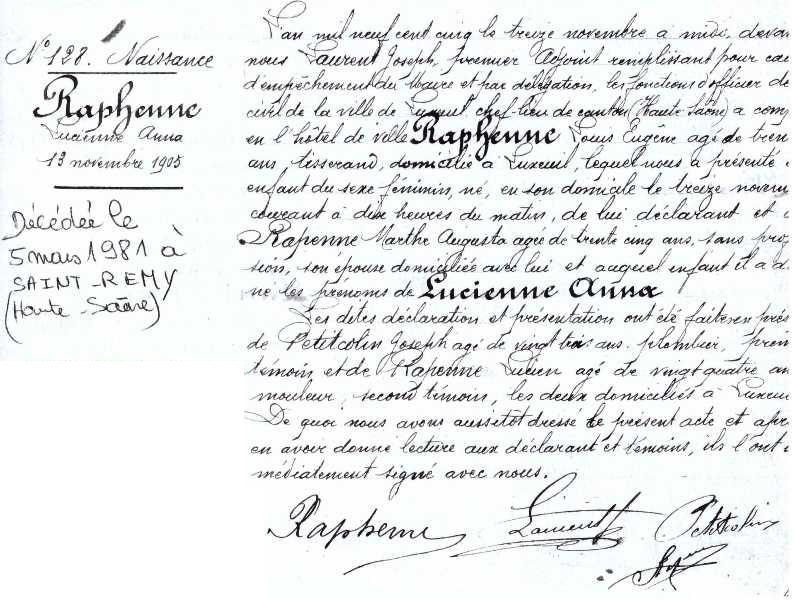 N° 128. Naissance
Raphenne
Lucienne Anna
13 novembre 1905
Décédée le
5 mars 1981 à
SAINT-REMY
(Haute-Saône)
L'an mil neuf cent cinq le treize novembre à midi, deva
nous Laurent Joseph, premier Adjoint remplissant pour cau
d'empêchement du Maire et par délégation, les fonctions d'officier de
civil de la ville de Luxeuil chef-lieu de canton (Haute Saône) a comp
en l'hôtel de ville Raphenne Louis Eugène agé de tren
ans, tisserand, domicilié à Luxeuil, lequel nous a présenté
enfant du sexe féminin, né, en son domicile le treize novem
courant à deux heures du matin, de lui déclarant et d
Rapenne Marthe Augusta agée de trente cinq ans, sans prof
sion, son épouse domiciliée avec lui et auquel enfant il a d
né les prénoms de Lucienne Anna
Les dites déclaration et présentation ont été faites en prés
de Petitcolin Joseph agé de vingt trois ans, plombier, prem
témoin et de Rapenne Lucien agé de vingt quatre an
mouleur, second témoin, les deux domiciliés à Luxeui
De quoi nous avons aussitôt dressé le présent acte et apr
en avoir donné lecture aux déclarant et témoins, ils l'ont
médiatement signé avec nous.
Raphenne Laurent Petitcolin